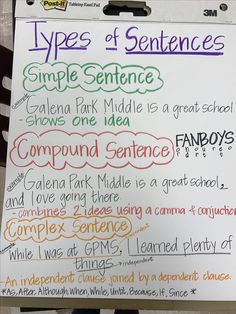 Post-it Tabletop Easel Pad 3M
Types of Sentences
Simple Sentence
example Galena Park Middle is a great school.
- shows one idea
Compound Sentence FANBOYS
example Galena Park Middle is a great school,
and I love going there.
- combines 2 ideas using a comma & conjunction
Complex Sentence dependent
example While I was at GPMS, I learned plenty of
things. independent
- An independent clause joined by a dependent clause.
*As, After, Although, When, While, Until, Because, If, Since *